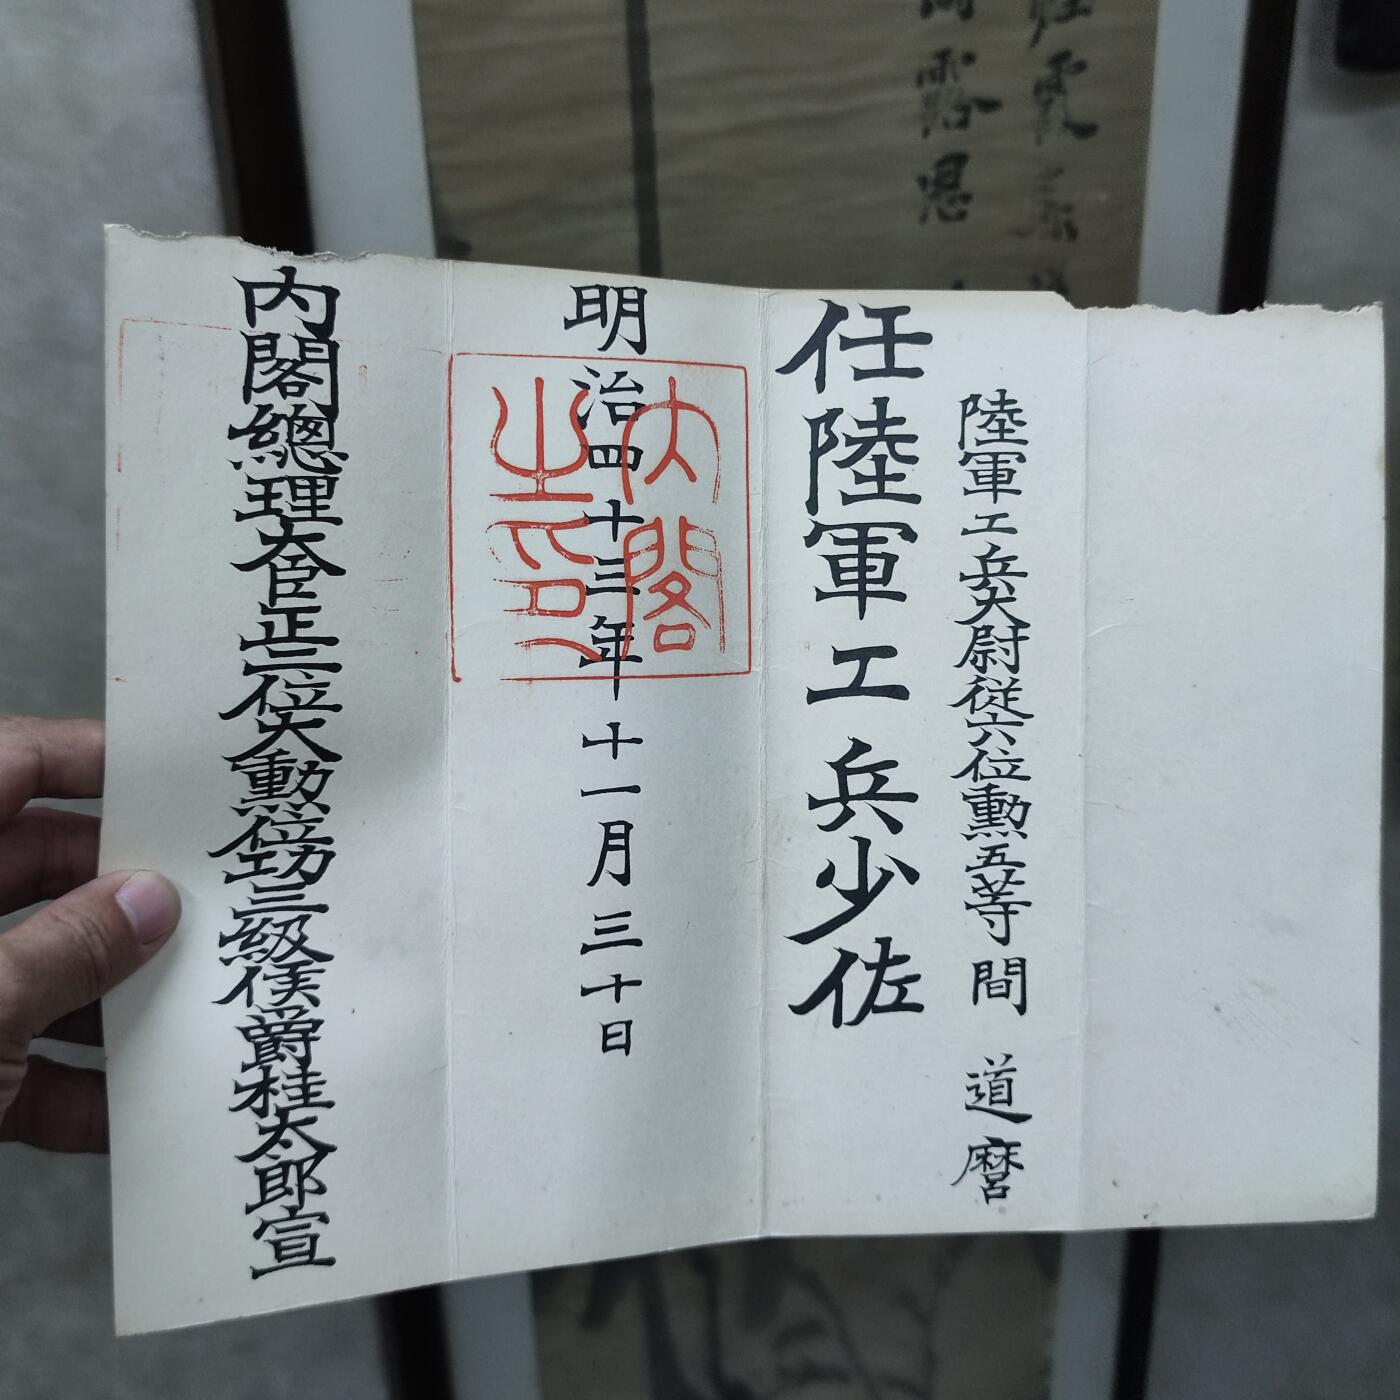 陸軍工兵大尉従六位勲五等間道麿
任陸軍工兵少佐
明治四十三年十一月三十日
内閣之印
内閣總理大臣正二位大勳位功三級侯爵桂太郎宣
露恩
霞